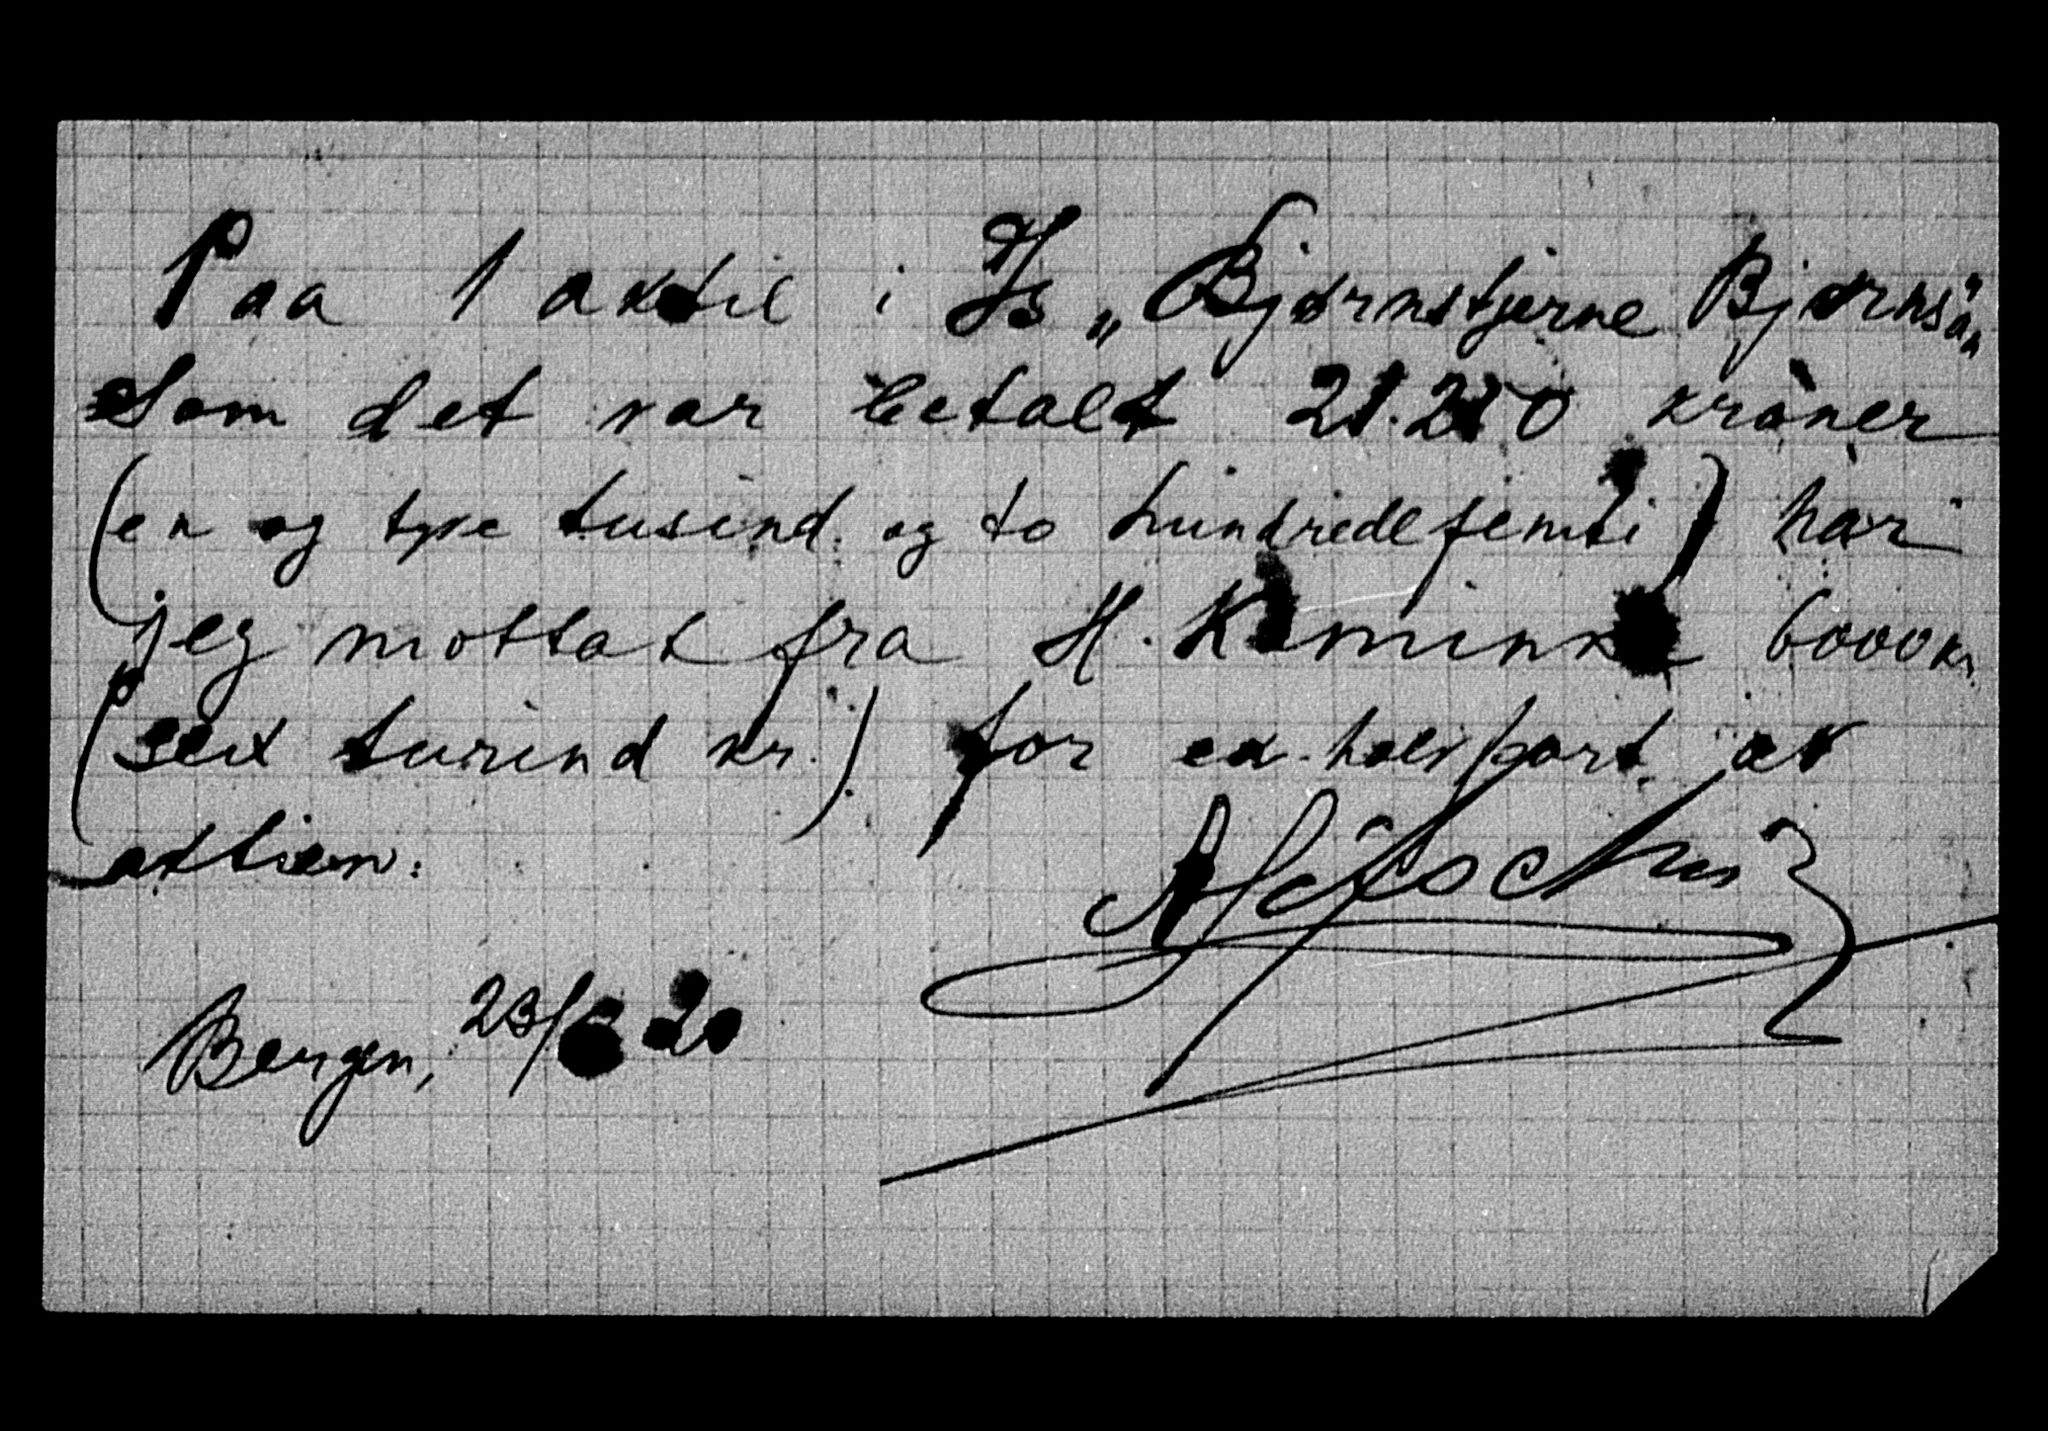 Paa 1 aktie i I/S „Bjørnstjerne Bjørnson"
Som det var betalt 21.250 kroner
(en og tyve tusind og to hundrede femti) har
jeg mottat fra H. Kaminka 6000 kr.
(sext tusind kr.) for en halv part av
aktien.
Bergen, 23/ 20